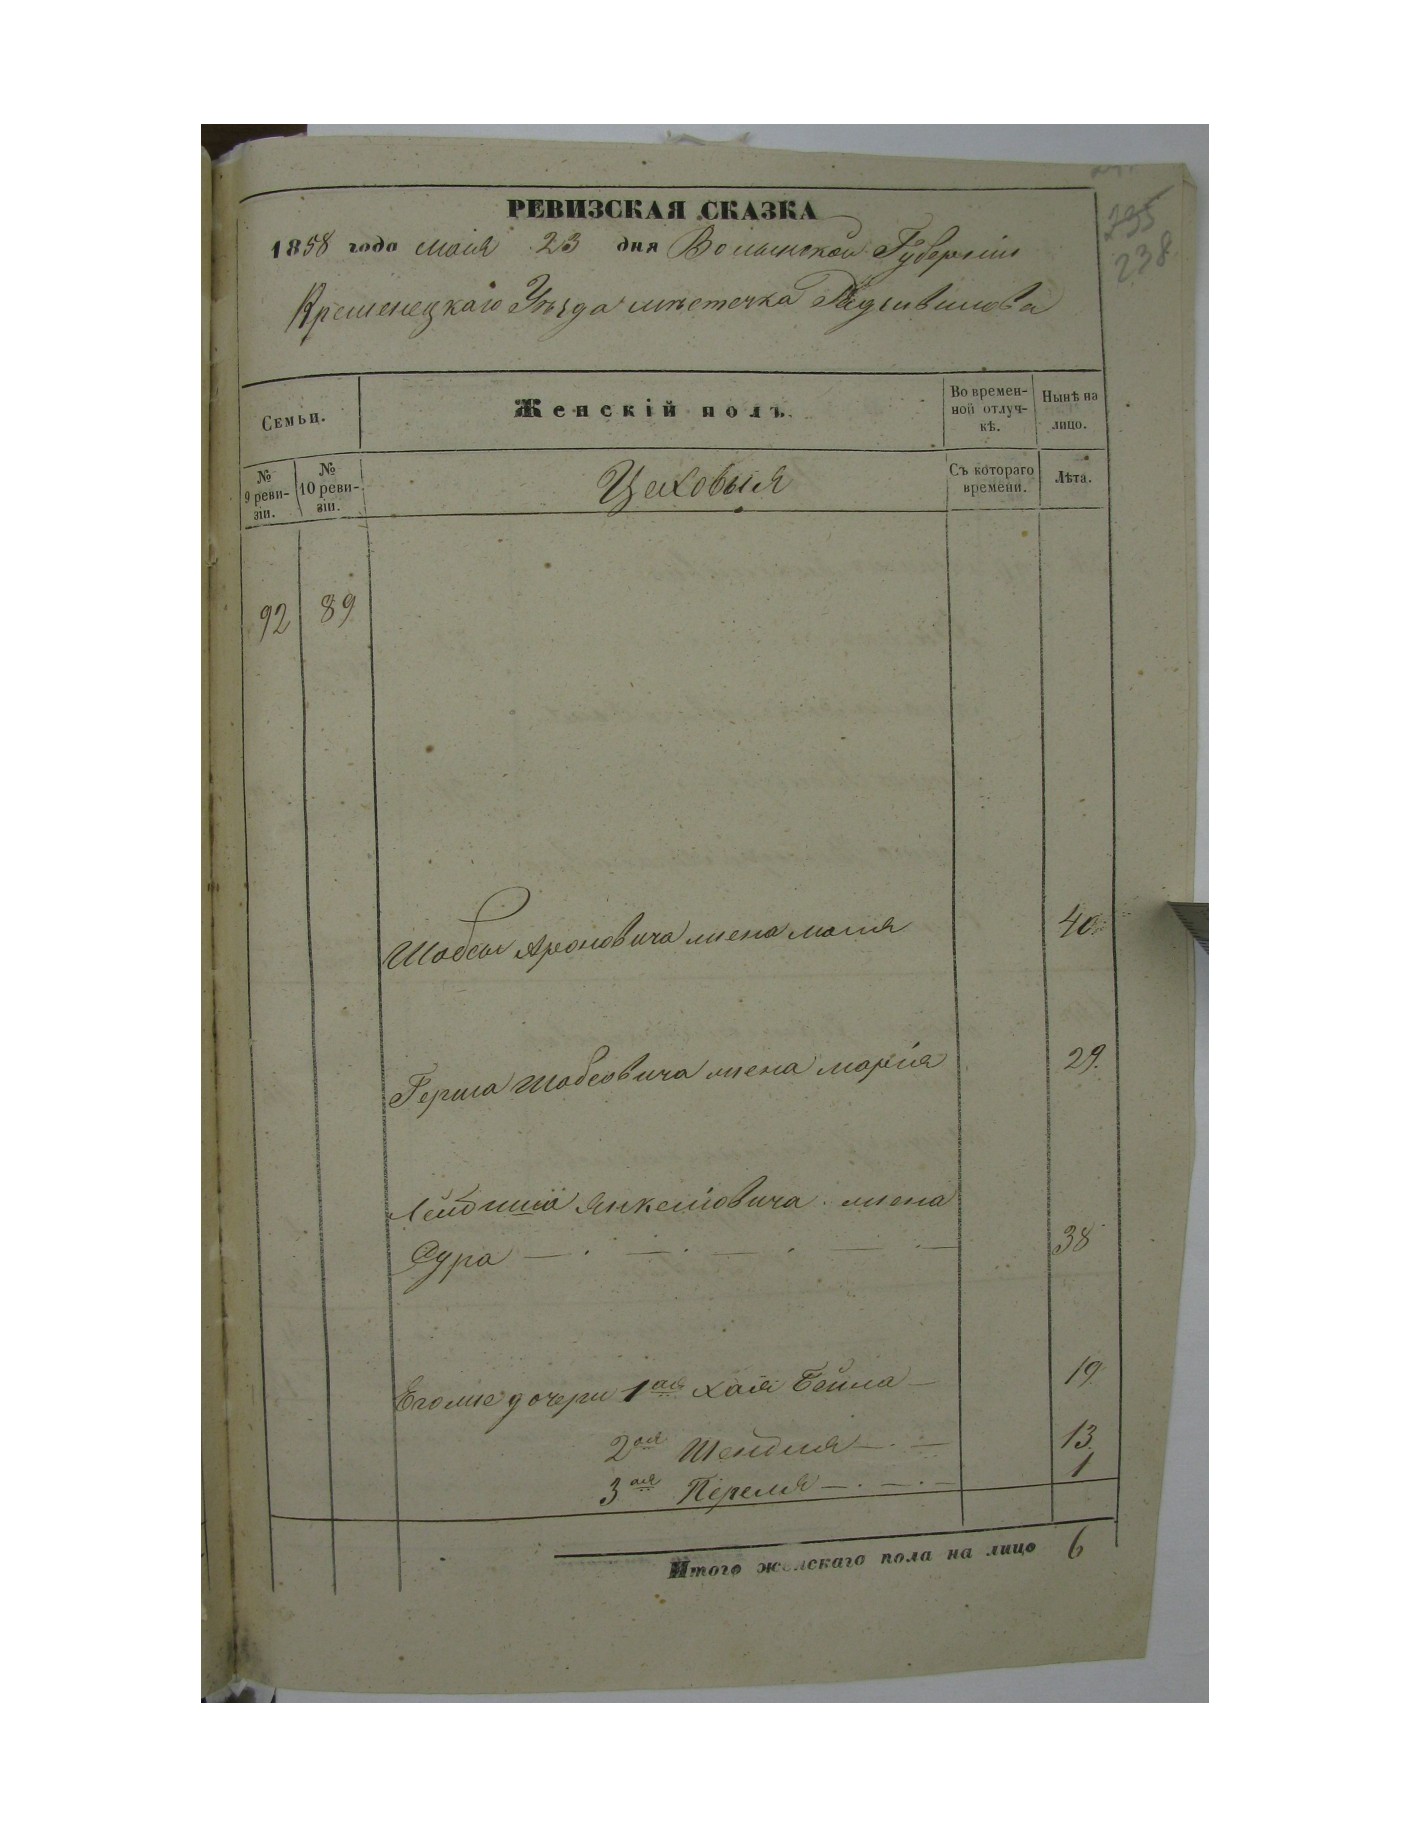 235
238
РЕВИЗСКАЯ СКАЗКА
1858 года мая 23 дня Волынской Губерніи
Кременецкаго Уѣзда мѣстечка Радзивилова
Семьи.
Женскій полъ.
Во времен-
ной отлуч-
кѣ.
Нынѣ на
лицо.
№
9 реви-
зіи.
№
10 реви-
зіи.
Цеховыя
Съ котораго
времени.
Лѣта.
92 89
Шобсы Ароновича жена 40
Герша Шобсовича жена Марія 29
Янкелевича жена
Сура 38
Егожe дочери 1ая Хая Бейла 19
2ая Шендля 13
3ая Перля 1
Итого женскаго пола на лицо 6